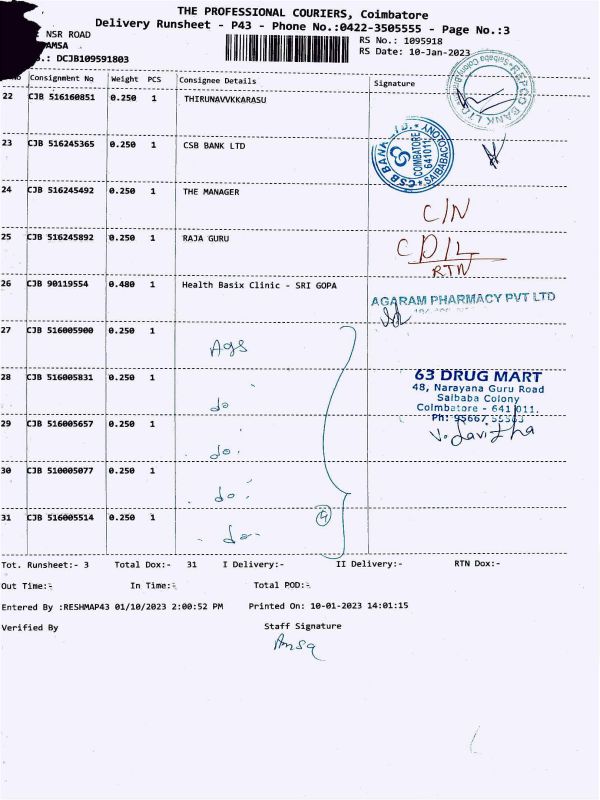 THE PROFESSIONAL COURIERS, Coimbatore
Delivery Runsheet - P43 - Phone No.:0422-3505555 - Page No.:3
: NSR ROAD
RS No.: 1095918
AMSA
RS Date: 10-Jan-2023
.: DCJB109591803
Consignment No Weight PCS Consignee Details Signature
22 CJB 516160851 0.250 1 THIRUNAVVKKARASU
REPCO BANK LTD
23 CJB 516245365 0.250 1 CSB BANK LTD
CSB BANK LTD. SAIBABACOLONY
COIMBATORE
641011
24 CJB 516245492 0.250 1 THE MANAGER
C/N
25 CJB 516245892 0.250 1 RAJA GURU
RTN
26 CJB 90119554 0.480 1 Health Basix Clinic - SRI GOPA
AGARAM PHARMACY PVT LTD
27 CJB 516005900 0.250 1
Ags
28 CJB 516005831 0.250 1
do
63 DRUG MART
48, Narayana Guru Road
Saibaba Colony
Coimbatore - 641 011.
29 CJB 516005657 0.250 1
do
30 CJB 510005077 0.250 1
do
31 CJB 516005514 0.250 1
do
Tot. Runsheet:- 3 Total Dox:- 31 I Delivery:- II Delivery:- RTN Dox:-
Out Time:- In Time:- Total POD:-
Entered By :RESHMAP43 01/10/2023 2:00:52 PM Printed On: 10-01-2023 14:01:15
Verified By Staff Signature
Amsa